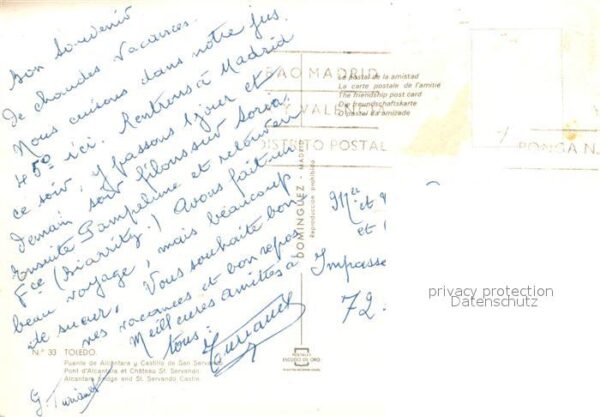 Bon Souvenir
de chaudes vacances.
Nous cuisons dans notre jus.
45° ici. Rentrons à Madrid
ce soir. Y passons 1 jour et
demain soir filons sur Soria.
Ensuite Pampelune et retour en
Fce (Biarritz.) Avons fait un
beau voyage, mais beaucoup
de sueur. Vous souhaite bonnes
vacances et bon repos
Meilleures amitiés à
tous.
N.° 33 TOLEDO.
Puente de Alcántara y Castillo de San Servando
Pont d'Alcantara et Château St. Servando
Alcantara bridge and St. Servando Castle.
DOMINGUEZ - MADRID
Reproducción prohibida
POSTALES
ESCUDO DE ORO
BAO MADRID
VALENCI
DISTRITO POSTAL
PONGA N.
La postal de la amistad
La carte postale de l'amitié
The friendship post card
Die freundschaftskarte
O postal da amizade
et
Impasse
72
privacy protection
Datenschutz